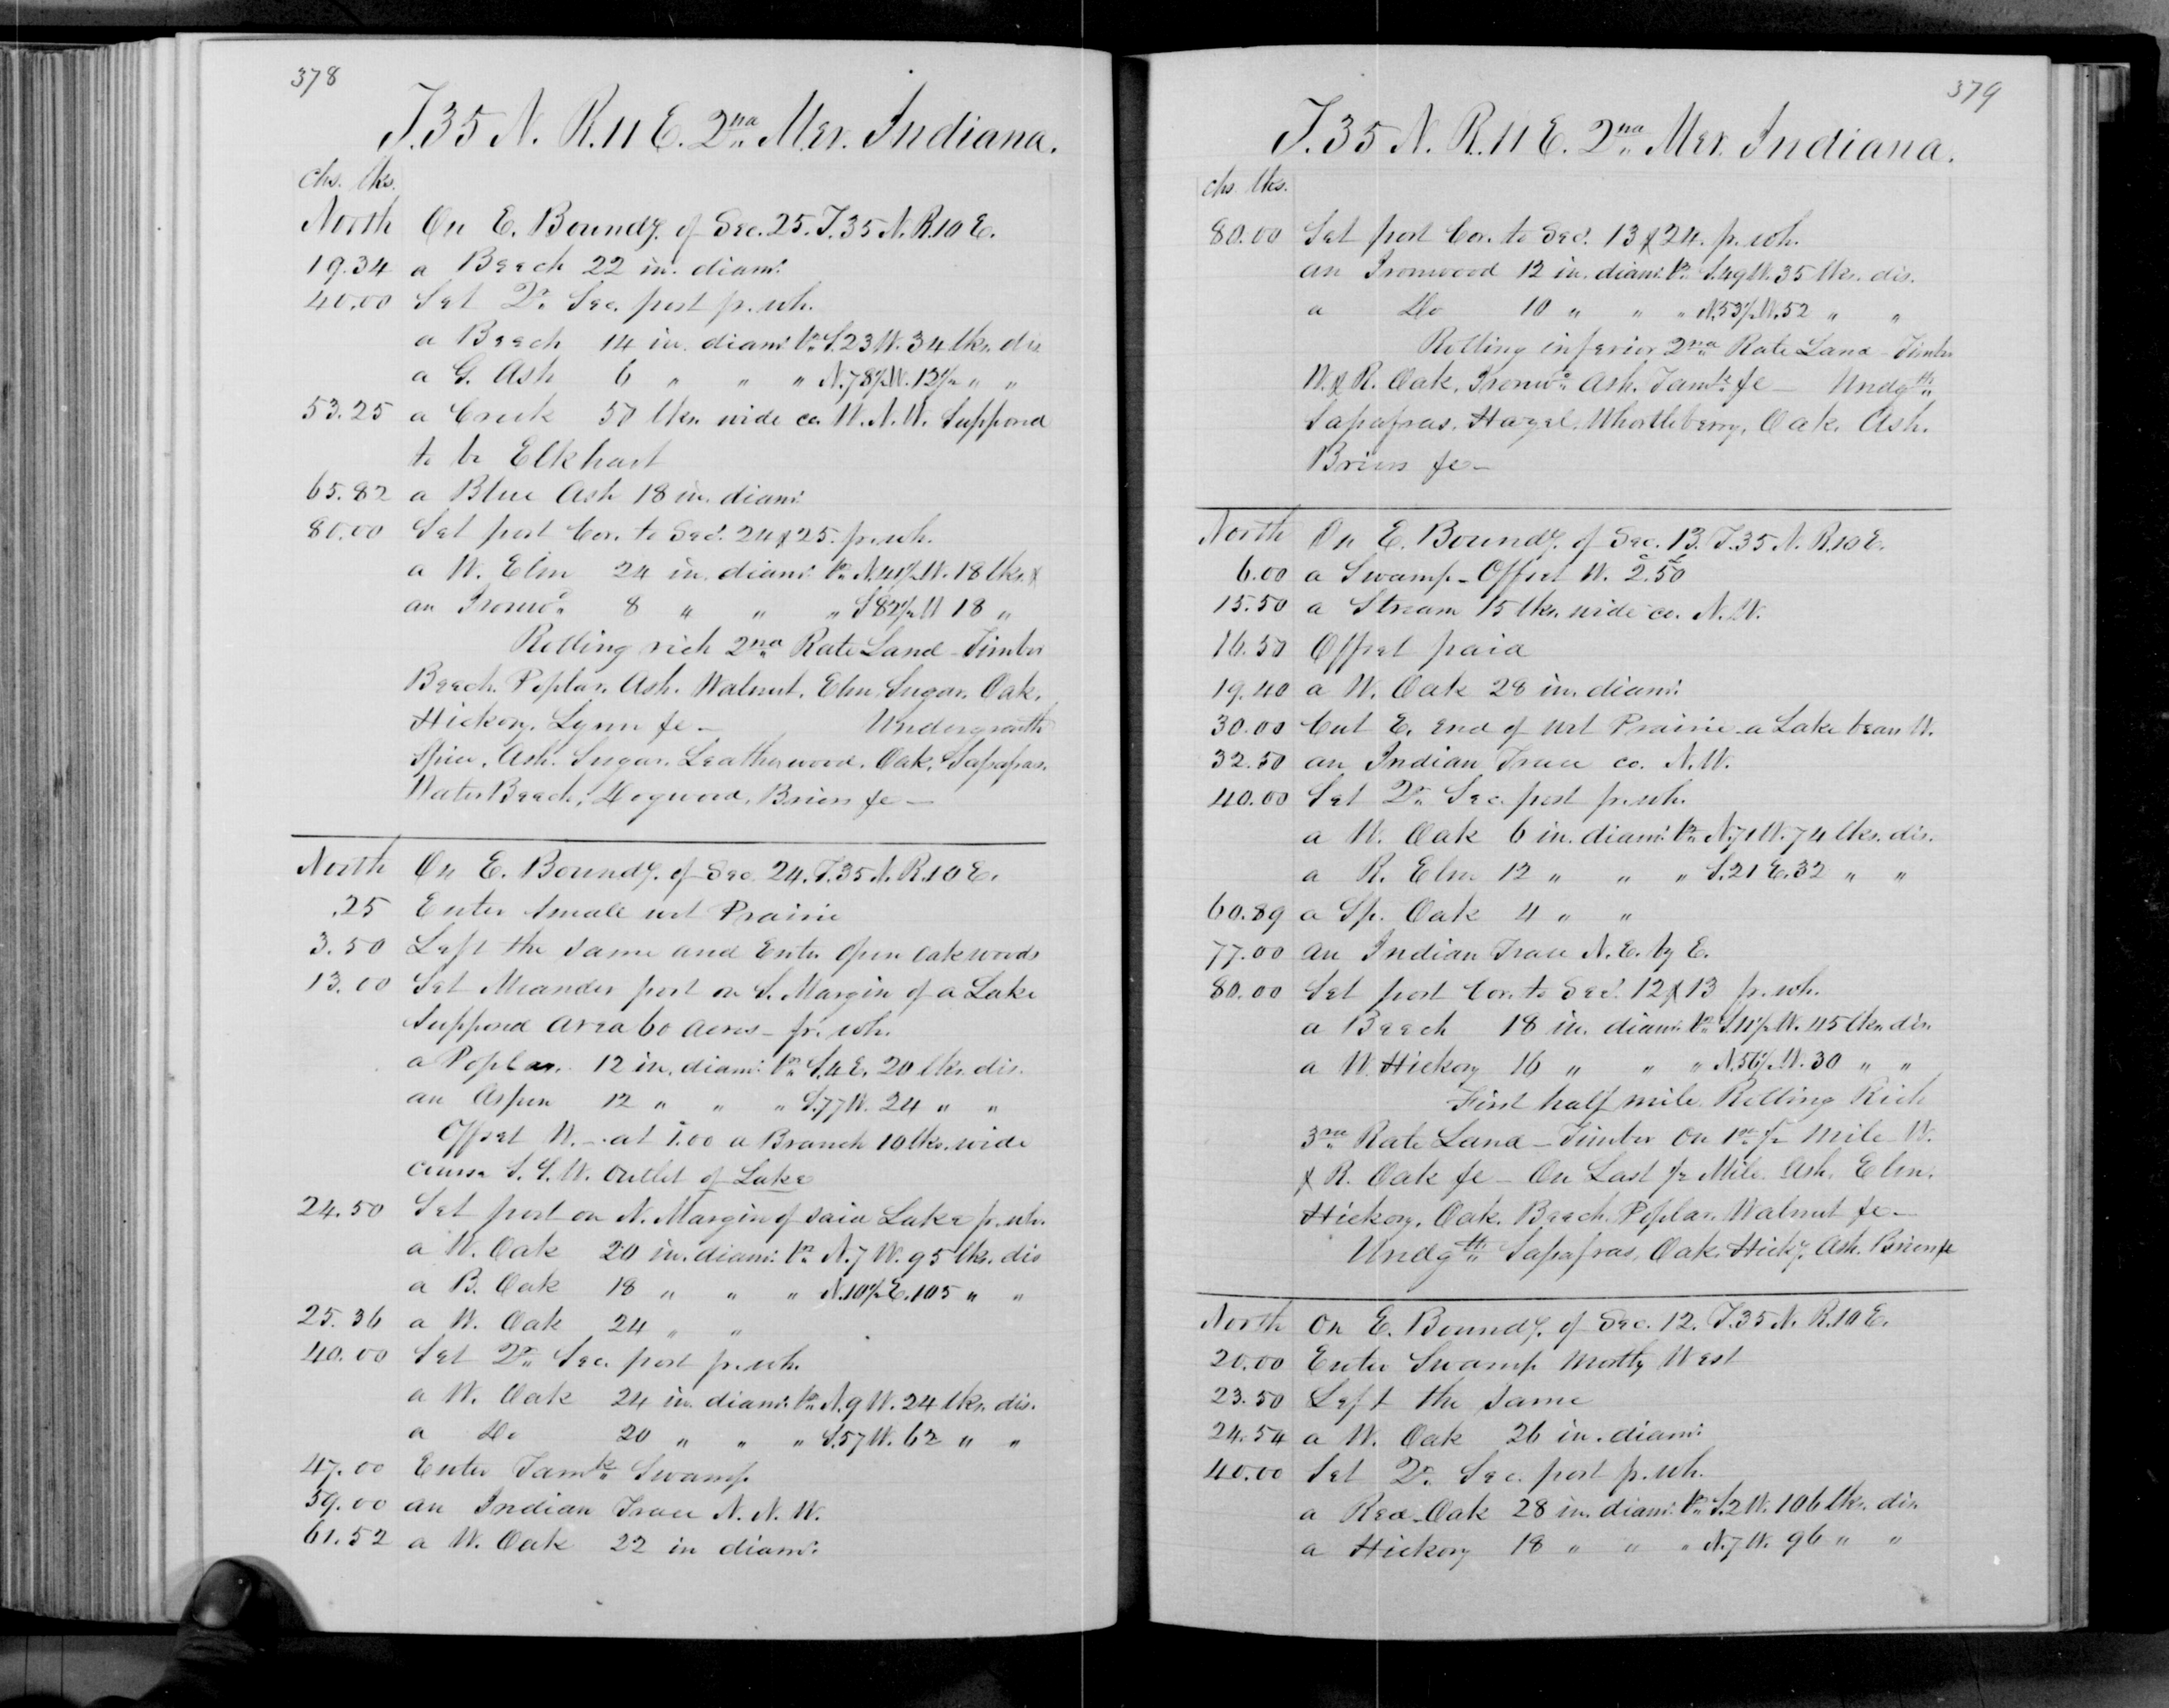 378
T.35 N. R.11 E. 2nd Mer. Indiana.
chs. lks.
North On E. Boundy. of Sec. 25. T.35 N. R.10 E.
19.34 a Beech 22 in. diamr.
40.00 Set Qr. Sec. post fr. wh.
a Beech 14 in. diamr. brs. S.23 W. 34 lks. dis
a G. Ash 6 " " " N.78½W. 12½ " "
53.25 a Creek 50 lks. wide co. W.N.W. Supposed
to be Elkhart
65.82 a Blue Ash 18 in. diamr.
80.00 Set post Cor. to Secs. 24 & 25. fr. wh.
a W. Elm 24 in. diamr. brs. N.41½W. 18 lks. &
an Ironwd. 8 " " " S 82½ W 18 "
Rolling rich 2nd Rate Land - Timber
Beech. Poplar. Ash. Walnut. Elm. Sugar. Oak.
Hickory. Lynn &c - Undergrowth
Spice. Ash. Sugar. Leatherwood. Oak. Sassafras.
Water Beech, Dogwood, Briers &c -
North On E. Boundy. of Sec. 24. T.35 N. R.10 E.
.25 Enter small wet Prairie
3.50 Left the same and Enter open oak woods
13.00 Set Meander post on S. Margin of a Lake
Supposed area 60 acres - fr. wh.
a Poplar. 12 in. diamr. brs. S.4 E. 20 lks. dis.
an Aspen 12 " " " S.77 W. 24 " "
Offset W. - at 1.00 a Branch 10 lks. wide
course S.S.W. outlet of Lake
24.50 Set post on N. Margin of said Lake fr. wh.
a W. Oak 20 in. diamr. brs. N.7 W. 95 lks. dis
a B. Oak 18 " " " N.10½E. 105 " "
25.36 a W. Oak 24 " "
40.00 Set Qr. Sec. post fr. wh.
a W. Oak 24 in. diamr. brs. N.9 W. 24 lks. dis.
a Do 20 " " " S.57 W. 62 " "
47.00 Enter Tamk. Swamp
59.00 an Indian Trace N.N.W.
61.52 a W. Oak 22 in diamr.
379
T.35 N. R.11 E. 2nd Mer. Indiana.
chs. lks.
80.00 Set post Cor. to Secs. 13 & 24. fr. wh.
an Ironwood 12 in. diamr. brs. S.49 W. 35 lks. dis.
a Do 10 " " " N.53½W. 52 " "
Rolling inferior 2nd Rate Land - Timber
W. & R. Oak. Ironwd. Ash. Tamk. &c - Undgth.
Sassafras. Hazel. Whortleberry. Oak. Ash.
Briers &c -
North On E. Boundy. of Sec. 13. T.35 N. R.10 E.
6.00 a Swamp - Offset W. 2.50
15.50 a Stream 15 lks. wide co. N.W.
16.50 Offset paid
19.40 a W. Oak 28 in. diamr.
30.00 Cut E. end of wet Prairie - a Lake bears W.
32.50 an Indian Trace co. N.W.
40.00 Set Qr. Sec. post fr. wh.
a W. Oak 6 in. diamr. brs. N.71 W. 74 lks. dis.
a R. Elm 12 " " " S.21 E. 32 " "
60.89 a Sp. Oak 4 " "
77.00 an Indian Trace N.E. by E.
80.00 Set post Cor. to Secs. 12 & 13 fr. wh.
a Beech 18 in. diamr. brs. S.11½W. 45 lks. dis.
a W. Hickory 16 " " " N.56½W. 30 " "
First half mile. Rolling Rich
3rd Rate Land - Timber on 1st ½ Mile W.
& R. Oak &c - On Last ½ Mile. Ash. Elm.
Hickory. Oak. Beech. Poplar. Walnut &c -
Undgth. Sassafras, Oak. Hicky. Ash. Briers &c
North On E. Boundy. of Sec. 12. T.35 N. R.10 E.
20.00 Enter Swamp mostly West
23.50 Left the same
24.54 a W. Oak 26 in. diamr.
40.00 Set Qr. Sec. post fr. wh.
a Red Oak 28 in. diamr. brs. S.2 W. 106 lks. dis.
a Hickory 18 " " " N.7 W. 96 " "